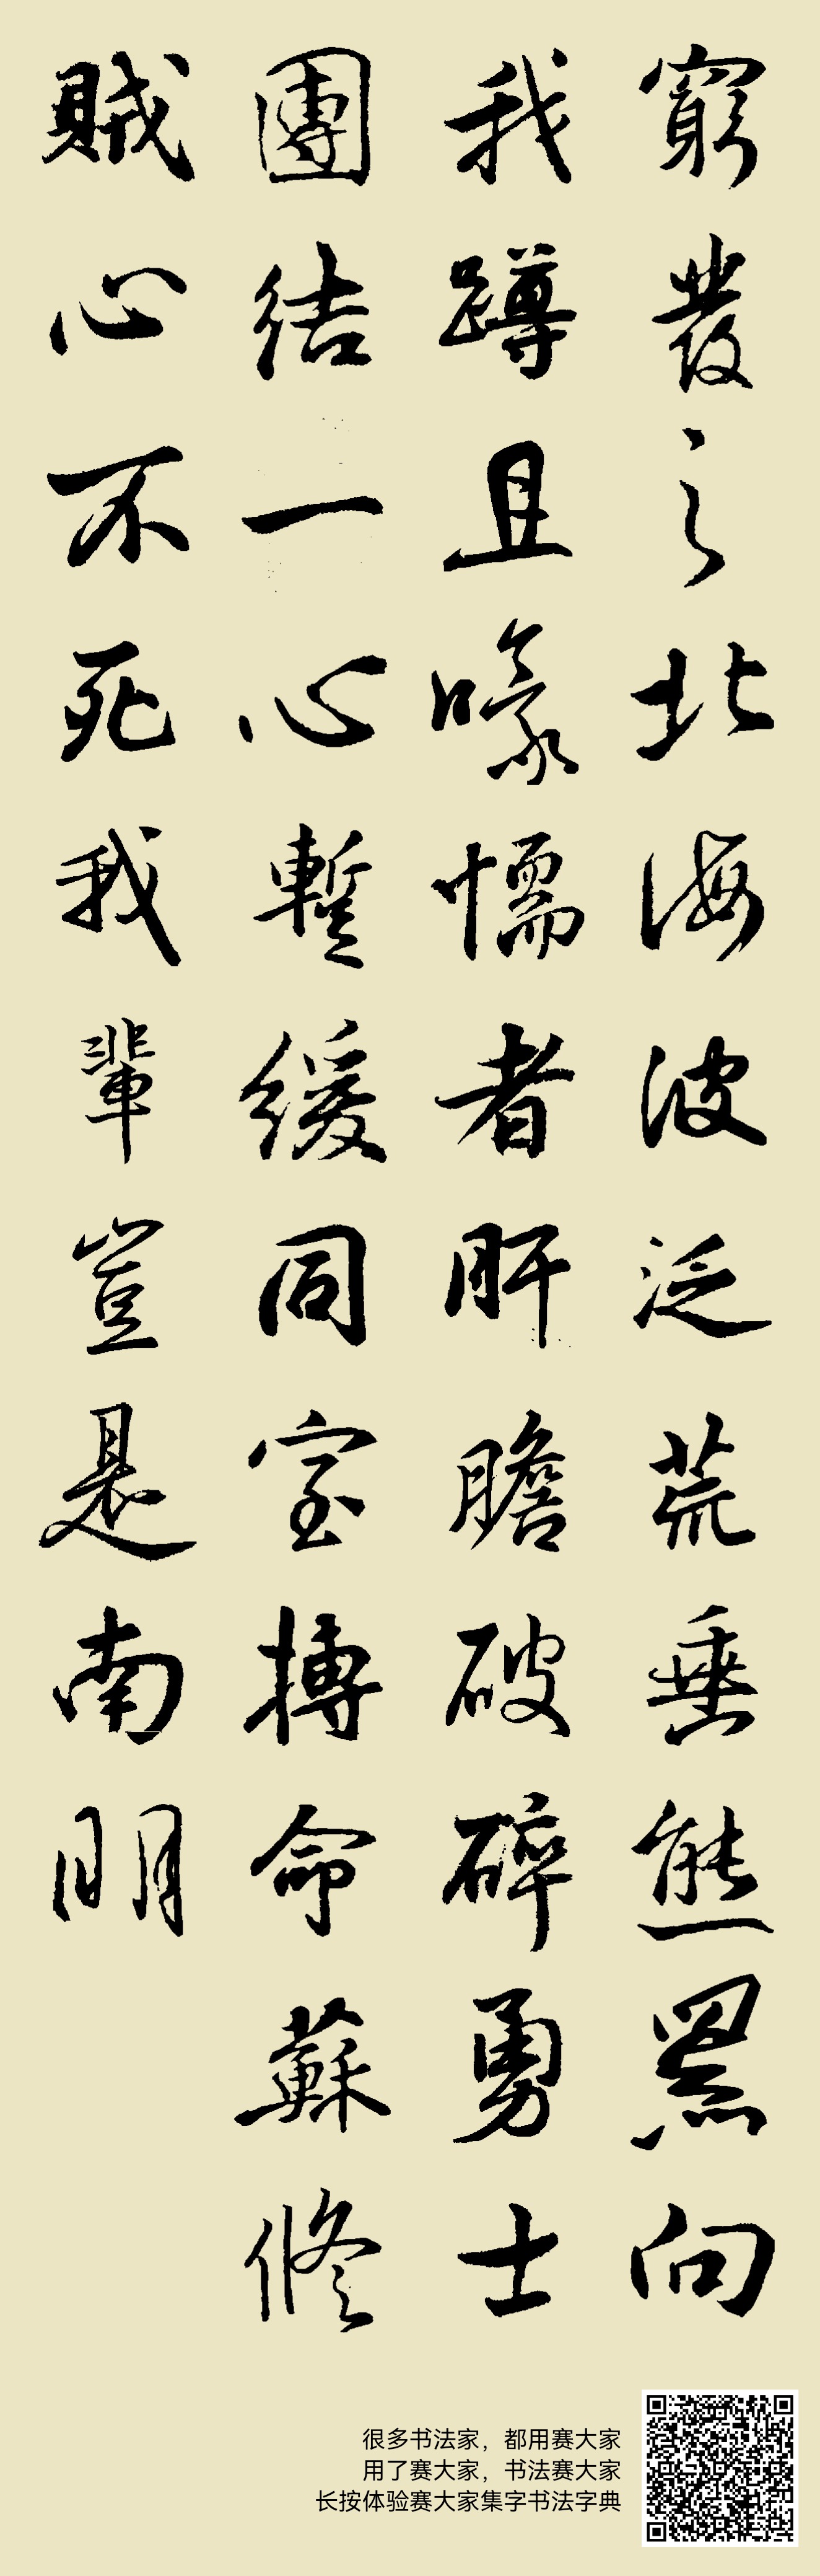 窮發之北海波泛荒垂熊羆向
我蹲且喙懦者肝膽破碎勇士
團結一心暫緩同室搏命蘇修
賊心不死我輩豈是南明
很多书法家，都用赛大家
用了赛大家，书法赛大家
长按体验赛大家集字书法字典